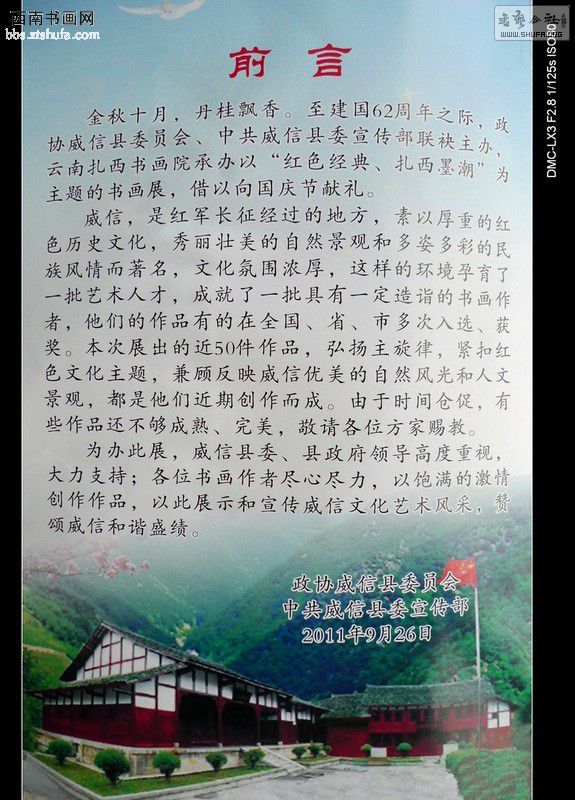 西南书画网
bbs.xtshufa.com
WWW.SHUFA.ORG
DMC-LX3 F2.8 1/125s ISO80
前言
金秋十月，丹桂飘香。至建国62周年之际，政
协威信县委员会、中共威信县委宣传部联袂主办，
云南扎西书画院承办以“红色经典、扎西墨潮”为
主题的书画展，借以向国庆节献礼。
威信，是红军长征经过的地方，素以厚重的红
色历史文化，秀丽壮美的自然景观和多姿多彩的民
族风情而著名，文化氛围浓厚，这样的环境孕育了
一批艺术人才，成就了一批具有一定造诣的书画作
者，他们的作品有的在全国、省、市多次入选、获
奖。本次展出的近50件作品，弘扬主旋律，紧扣红
色文化主题，兼顾反映威信优美的自然风光和人文
景观，都是他们近期创作而成。由于时间仓促，有
些作品还不够成熟、完美，敬请各位方家赐教。
为办此展，威信县委、县政府领导高度重视，
大力支持；各位书画作者尽心尽力，以饱满的激情
创作作品，以此展示和宣传威信文化艺术风采，赞
颂威信和谐盛绩。
政协威信县委员会
中共威信县委宣传部
2011年9月26日